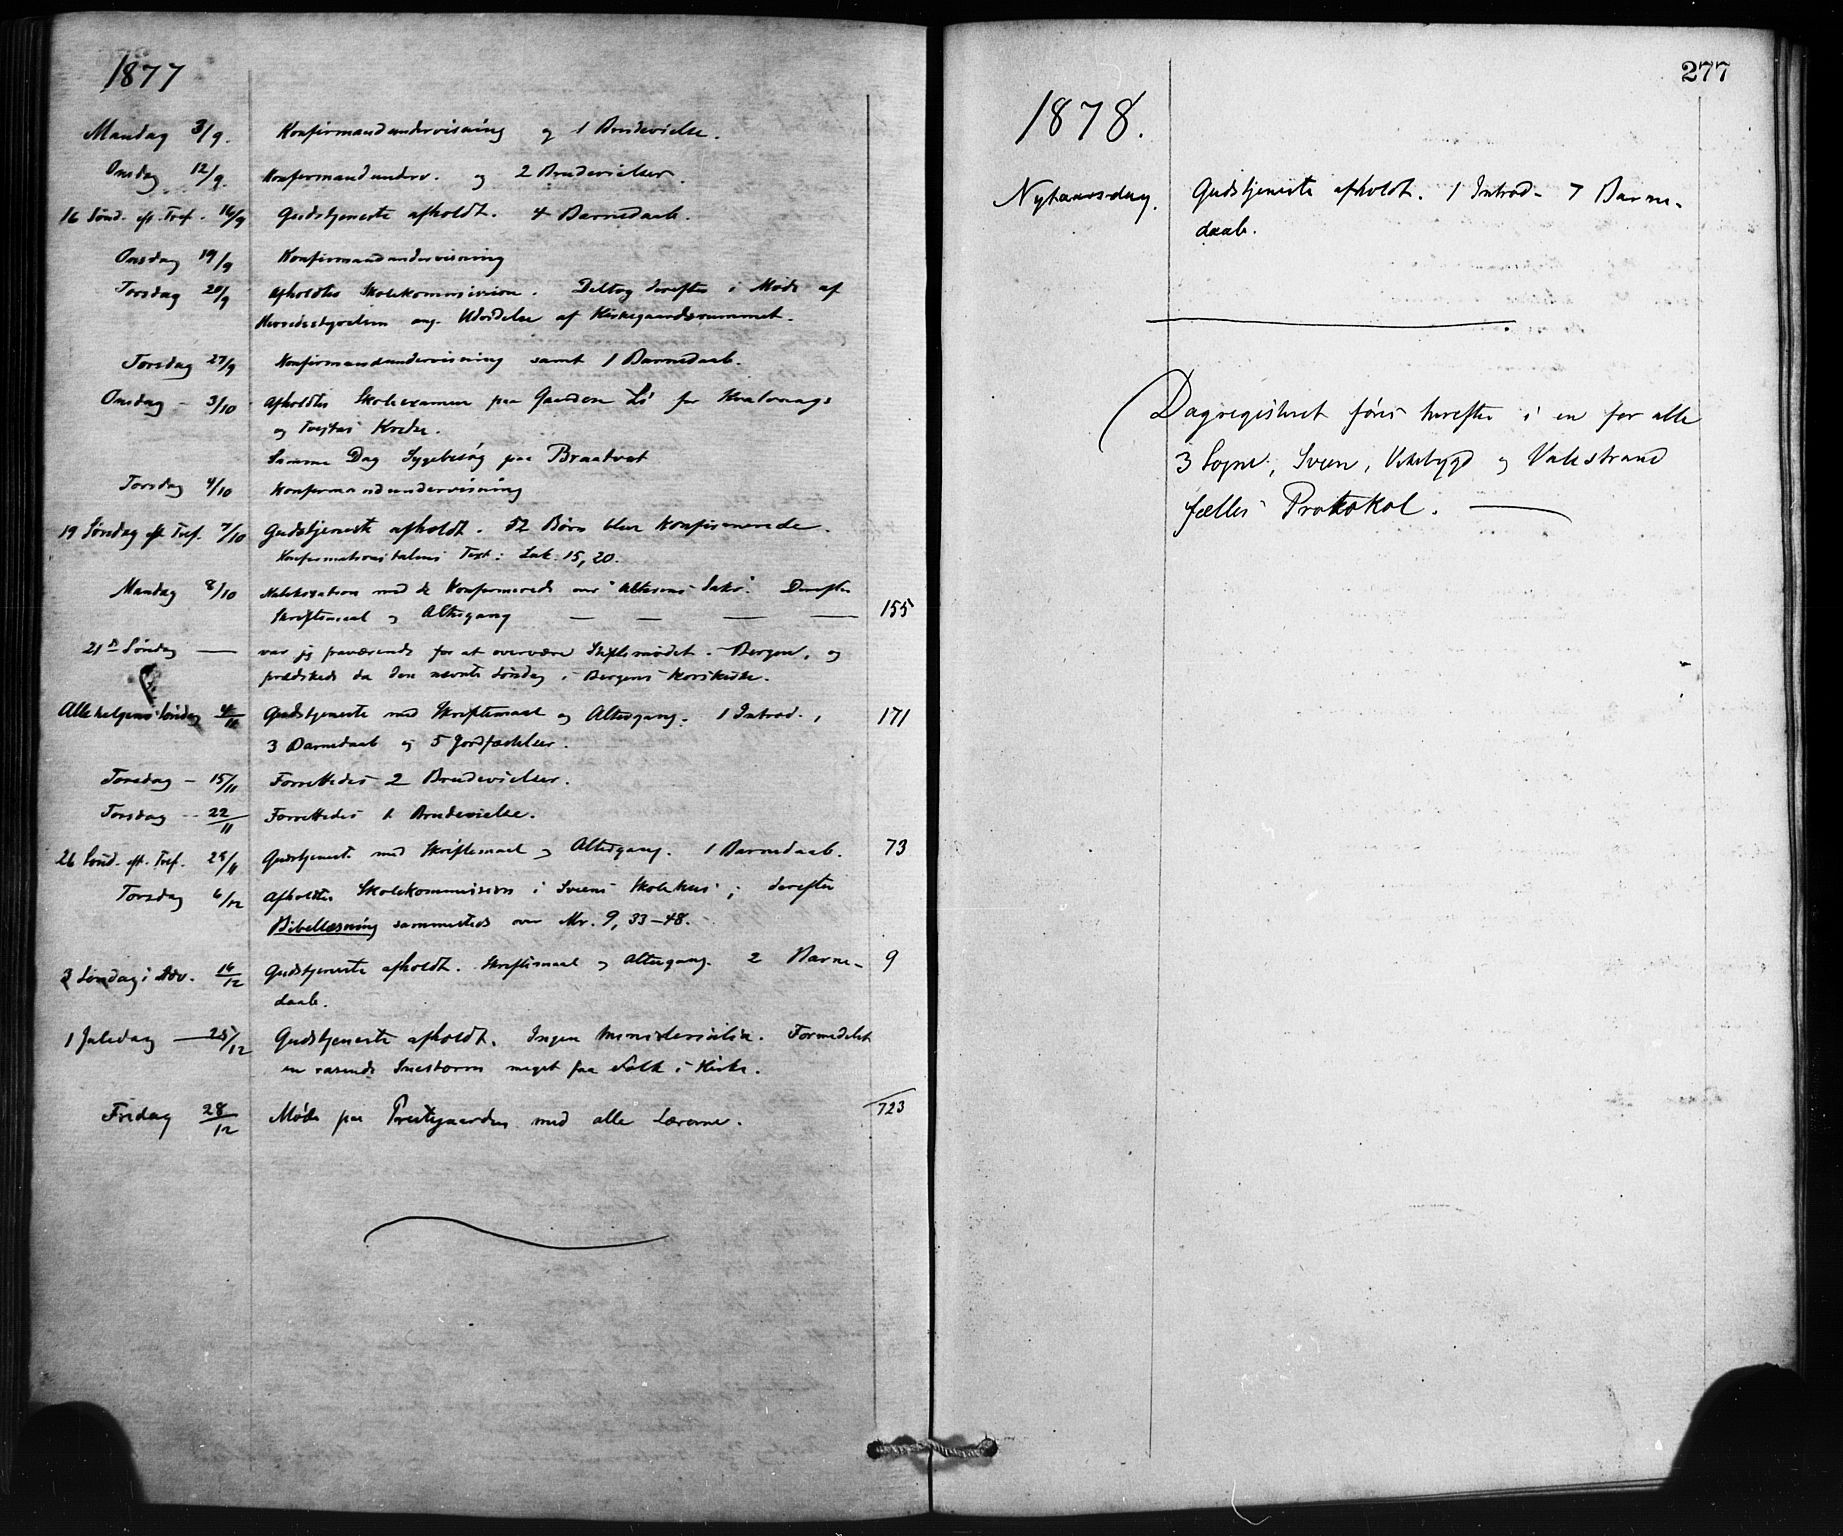 1877
Mandag 3/9. Konfirmandundervisning og 1 Brudevielse.
Onsdag 12/9. Konfirmandunderv. og 2 Brudevielser.
16 Sönd. eft. Tref. 16/9 Gudstjeneste afholdt. 4 Barnedaab.
Onsdag 19/9 Konfirmandundervisning
Torsdag 20/9 Afholdtes Skolekommission. Deltog derefter i Møde af
Herredsstyrelsen ang. Udvidelse af Kirkegaardsrummet.
Torsdag 27/9 Konfirmandundervisning samt 1 Barnedaab.
Onsdag - 3/10 Afholdtes Skoleexamen paa Gaarden Li for
og Kreds.
Samme Dag Sygebesøg paa Braatvet
Torsdag 4/10 Konfirmandundervisning
19 Söndag eft Tref. 7/10 Gudstjeneste afholdt. 52 Börn blev konfirmerede.
Konfirmationstalens Text: Luk. 15, 20.
Mandag 8/10 Katekisation med de Konfirmerede over "Alterens Sakr." Derefter
Skriftemaal og Altergang — — — — 155
21de Söndag — var jeg fraværende for at overvære Stiftsmödet i Bergen, og
prædikede da den nævnte Söndag i Bergens Korskirke.
Allehelgens Söndag 4/11 Gudstjeneste med Skriftemaal og Altergang. 1 Introd., 171
3 Barnedaab og 5 Jordfæstelser.
Torsdag - 15/11 Forrettedes 2 Brudevielser.
Torsdag - 22/11 Forrettedes 1 Brudevielse.
26 Sönd. eft. Tref. 25/11 Gudstjeneste med Skriftemaal og Altergang. 1 Barnedaab. 73
Torsdag 6/12 Afholdtes Skolekommission i Sveens Skolehus; derefter
Bibellæsning sammesteds over Mr. 9, 33-48.
3 Söndag i Adv. 16/12 Gudstjeneste afholdt. Skriftemaal og Altergang. 2 Barne- 9
daab.
1 Juledag — 25/12 Gudstjeneste afholdt. Ingen ministerialia. Formedelst
en rasende Snestorm meget faa Folk i Kirke.
Fredag 28/12 Møde paa Prestegaarden med alle Lærerne. 723
277
1878.
Nytaarsdag. Gudstjeneste afholdt. 1 Introd- 7 Barne-
daab.
Dagregisteret föres herefter i en for alle
3 Sogne, Sveen, Vikebygd og Valestrand
fælles Protokol. —